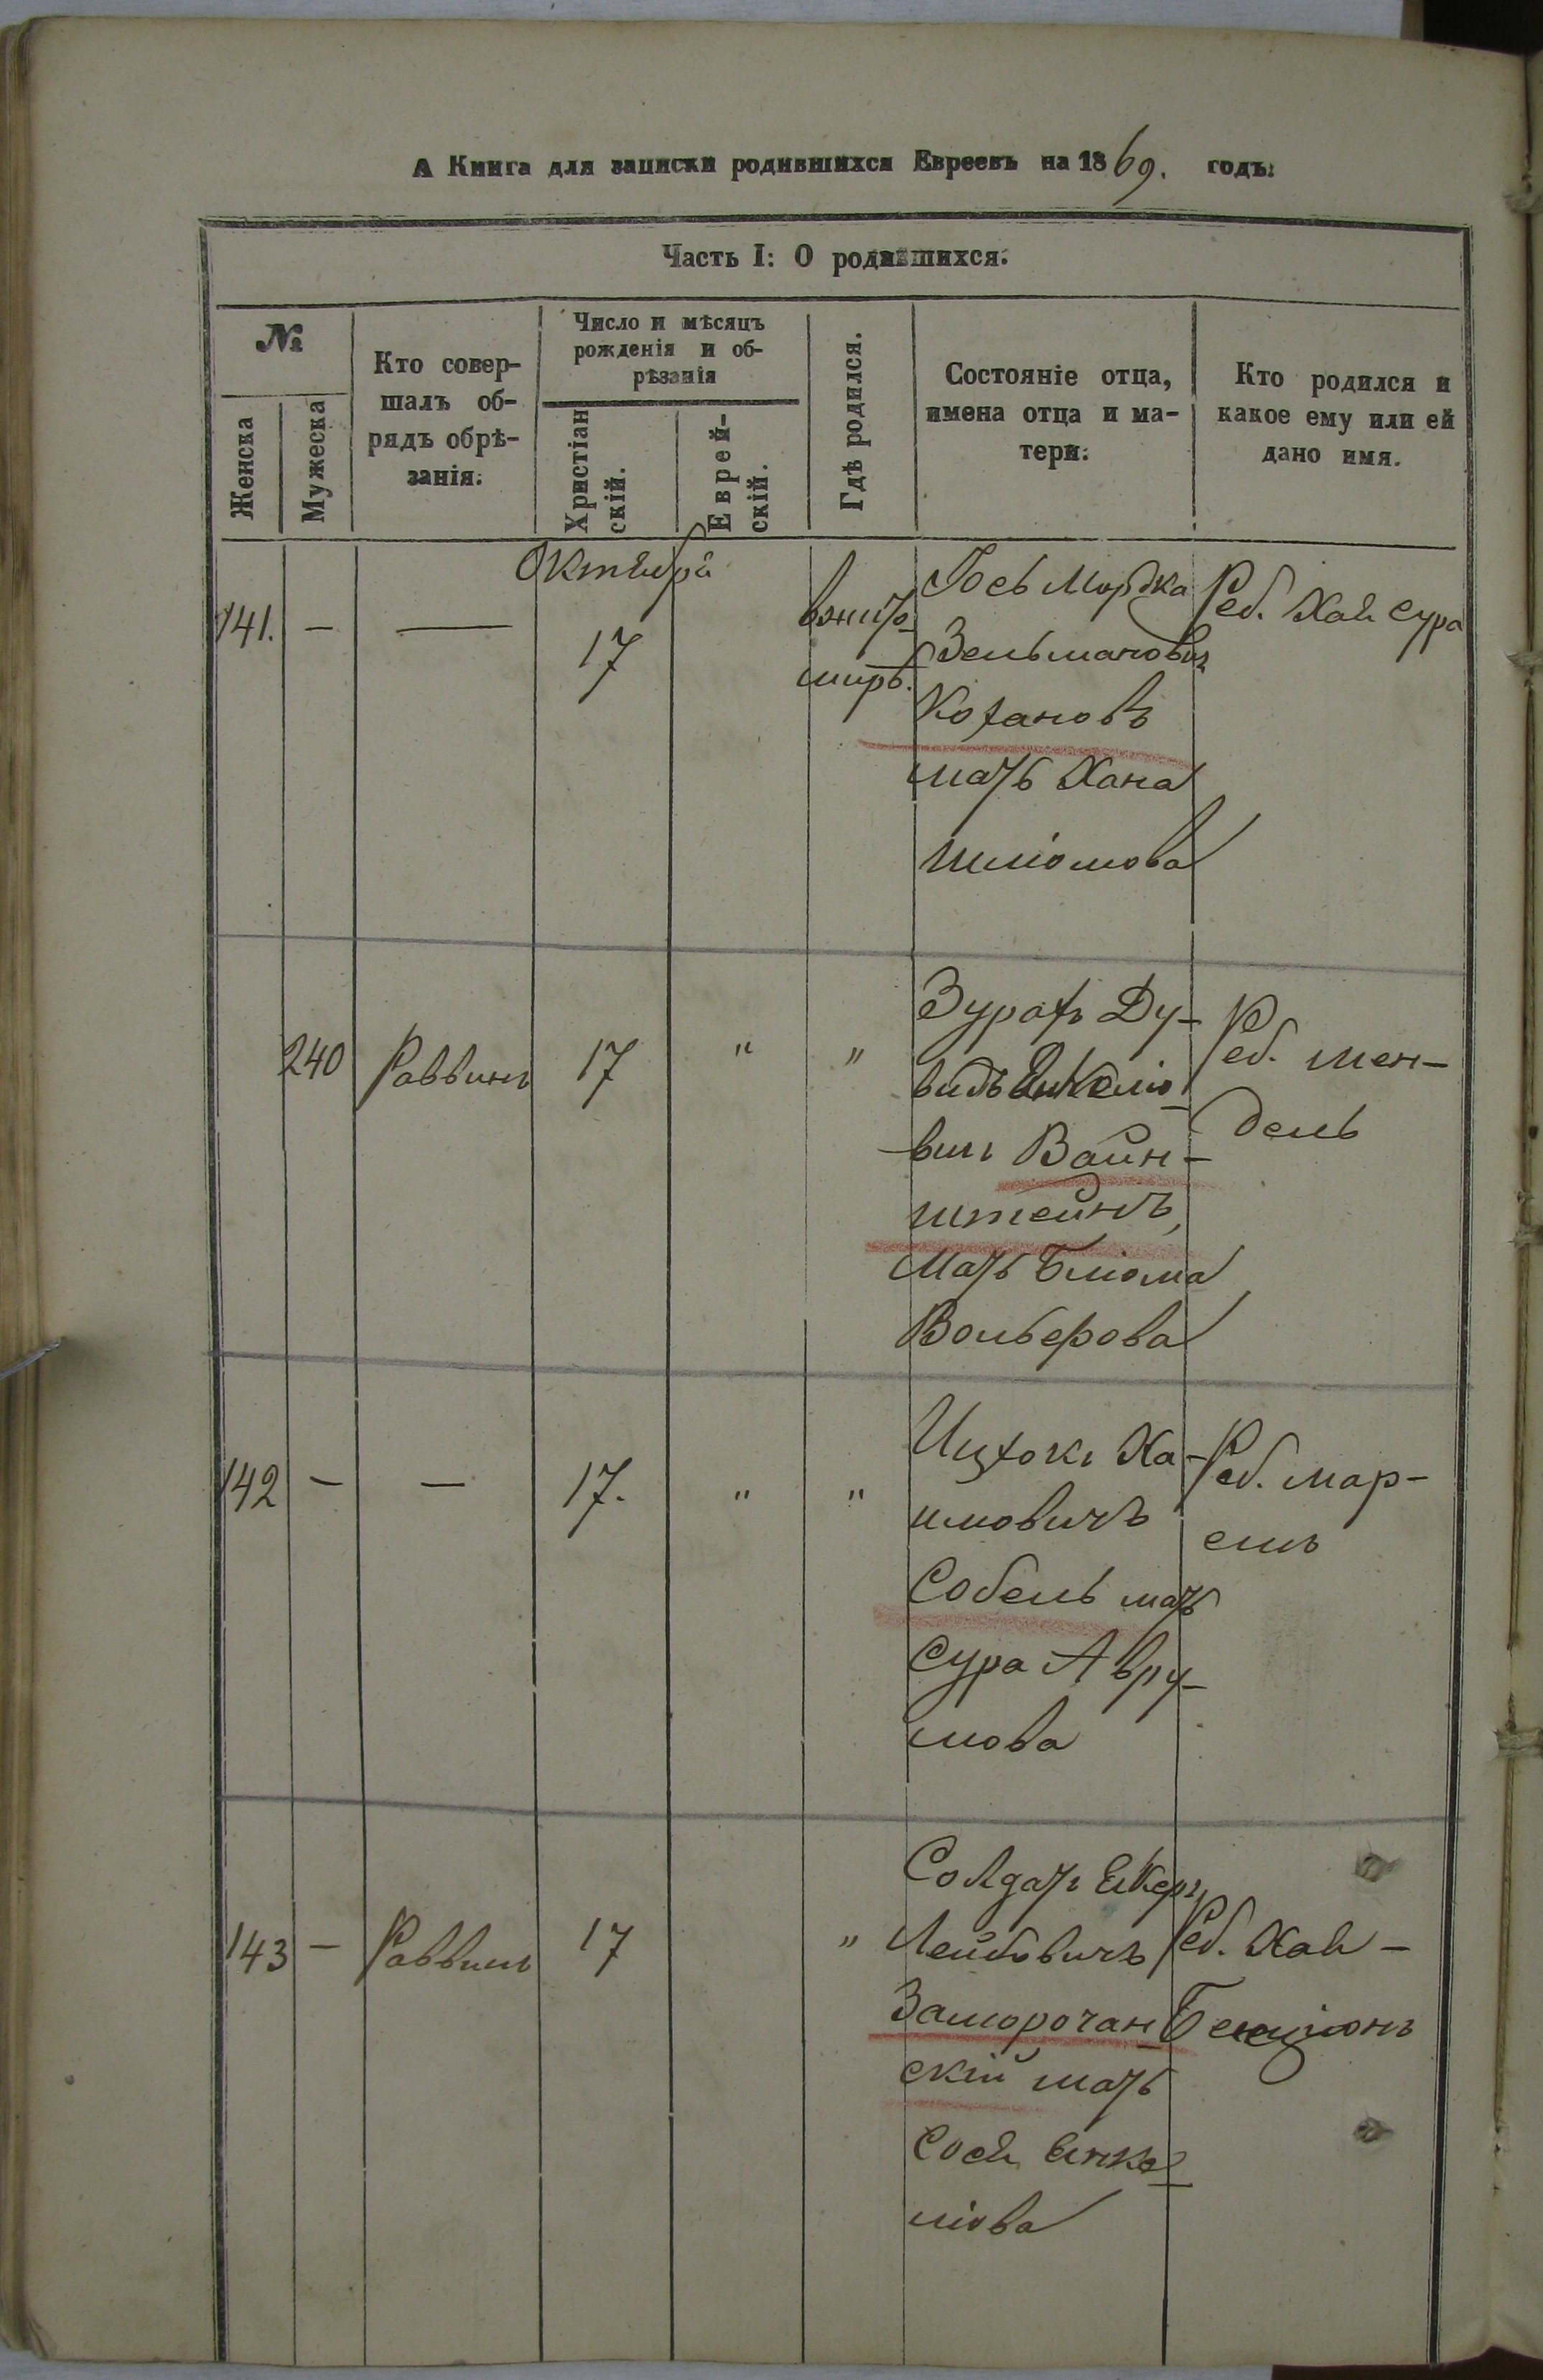 А Книга для записки родившихся Евреевъ на 1869. годъ.
Часть I: О родившихся.
№
Женска
Мужеска
Кто совер-
шалъ об-
рядъ обрѣ-
занія.
Число и мѣсяцъ
рожденія и об-
рѣзанія
Христіан
скій.
Еврей-
скій.
Гдѣ родился.
Состояніе отца,
имена отца и ма-
тери.
Кто родился и
какое ему или ей
дано имя.
Октября
141. — — 17
вжито-
миръ.
Іось Мордка
Зельмановичъ
Козановъ
мать Хана
Шліомова
Реб. Хая Сура
240 Раввинъ 17 " "
Ду-
видъ Янкеліо-
вичъ Вайн-
штейнъ,
Мать Бліома
Вольфова
Реб. Мен-
дель
142 — — 17. " "
Ицхокъ Ха-
имовичъ
Собель мать
Сура Авру-
мова
Реб. Мар-
емъ
143 — Раввинъ 17 "
Солдатъ
Лейбовичъ
Заморочан-
скій мать
Сося Янке-
ліова
Реб. Хая-
Бенціонъ